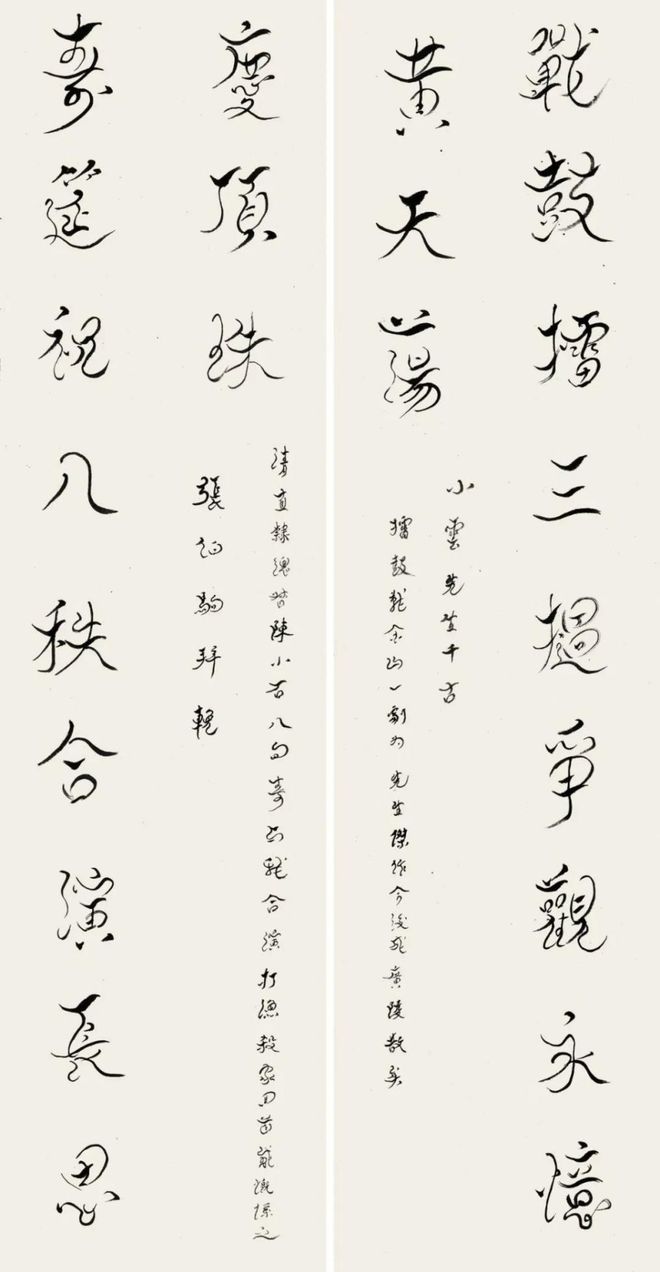 戰鼓擂三撾爭觀永憶
黃天蕩
小雲先生千古
擂鼓戰金山一劇為先生傑作今後成廣陵散矣
壽筵祝八秩合演長思
慶頂珠
清直隸總督陳小石八旬壽合演打漁殺家回首慨係之
張伯駒拜輓